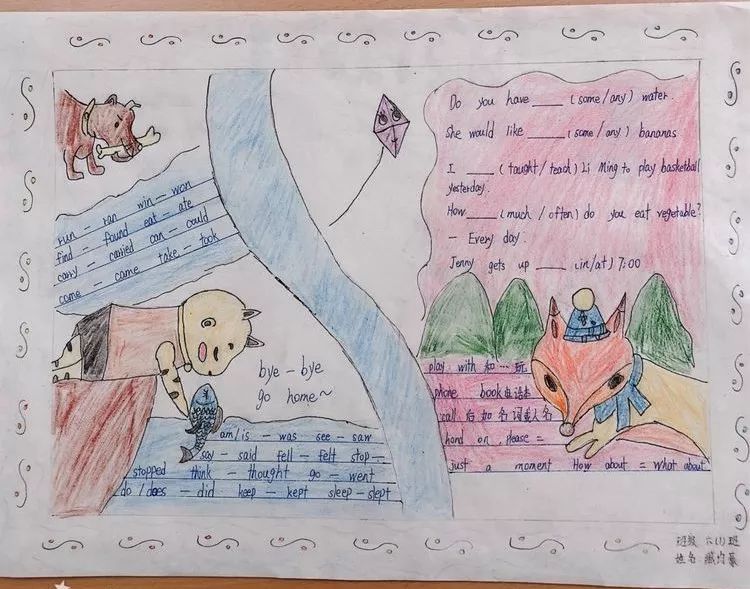 Do you have ____ (some/any) water.
She would like ____ (some/any) bananas
I ____ (taught/teach) Li Ming to play basketball
yesterday.
How ____ (much/often) do you eat vegetable?
— Every day.
Jenny gets up ____ (in/at) 7:00
run — ran win — won
find — found eat — ate
carry — carried can — could
come — came take — took
bye-bye
go home~
play with 和…玩
phone book 电话本
call 后加名词或人名
hand on, please =
just a moment How about = What about
am/is — was see — saw
say — said fell — felt stop —
stopped think — thought go — went
do/does — did keep — kept sleep — slept
班级 六(1)班
姓名